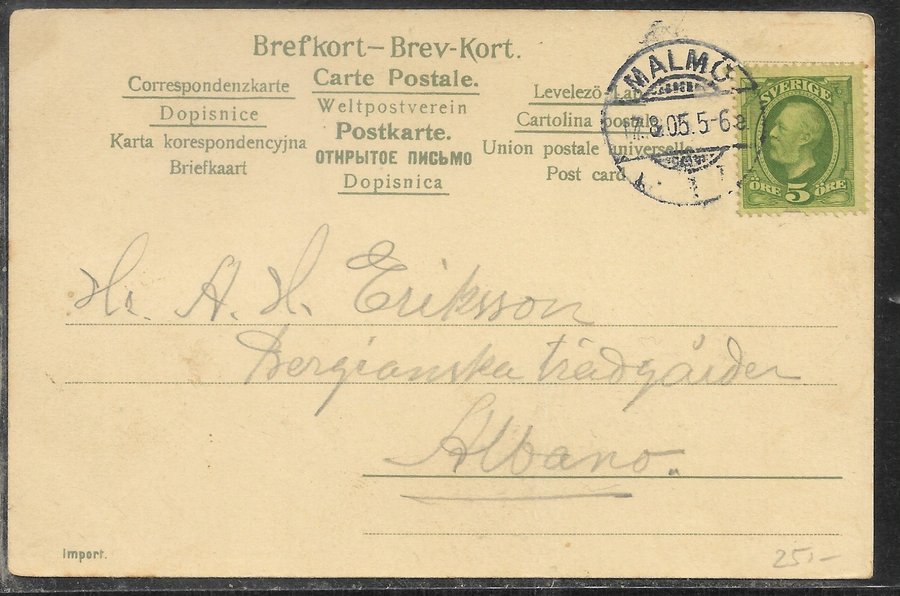 Brefkort – Brev-Kort.
Correspondenzkarte
Dopisnice
Karta korespondencyjna
Briefkaart
Carte Postale.
Weltpostverein
Postkarte.
ОТКРЫТОЕ ПИСЬМО
Dopisnica
Levelező-Lap
Cartolina postale
Union postale universelle
Post card
MALMÖ
17.8.05.5-6
1
SVERIGE
ÖRE 5 ÖRE
Hr. A. H. Eriksson
Bergianska trädgården
Albano.
Import.
25:-